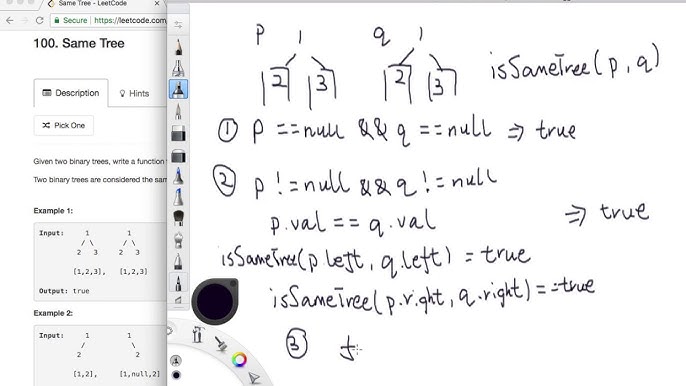 Same Tree - LeetCode
Secure https://leetcode.com/
100. Same Tree
Description Hints
Pick One
Given two binary trees, write a function
Two binary trees are considered the sam
Example 1:
Input: 1 1
/ \ / \
2 3 2 3
[1,2,3], [1,2,3]
Output: true
Example 2:
Input: 1 1
/ \
2 2
[1,2], [1,null,2]
p 1 q 1
2 3 2 3
isSameTree(p,q)
① p ==null && q ==null => true
② p !=null && q !=null
p.val == q.val => true
isSameTree(p.left, q.left) = true
isSameTree(p.right, q.right) ==true
③ f